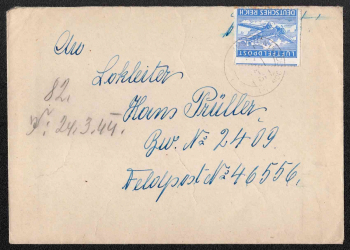 LUFTFELDPOST
DEUTSCHES REICH
An
Lokleiter
Hans Prüller
Bw. № 2409.
Feldpost № 46556.
82.
24.3.44.